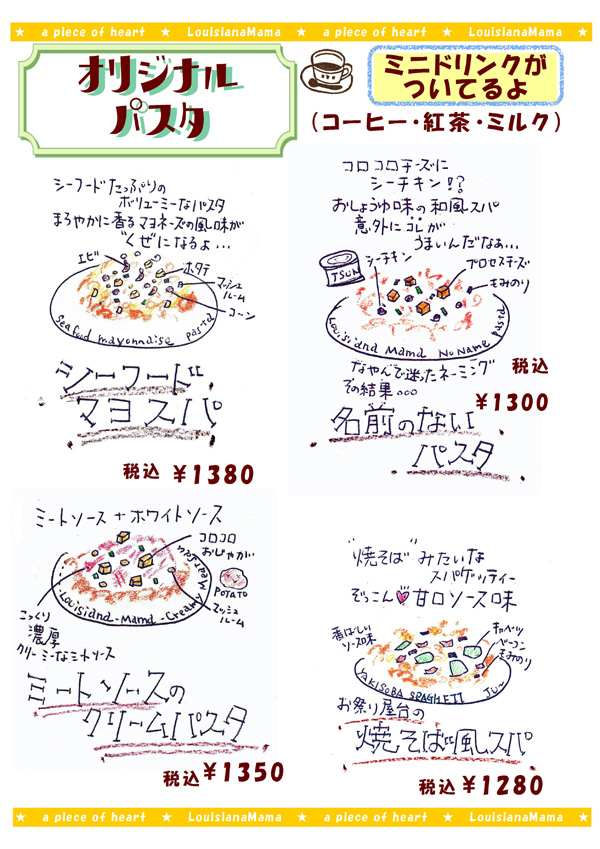 ★ a piece of heart ★ LouisianaMama ★ a piece of heart ★ LouisianaMama ★
オリジナル
パスタ
ミニドリンクが
ついてるよ
(コーヒー・紅茶・ミルク)
シーフードたっぷりの
ボリューミーなパスタ
まろやかに香るマヨネーズの風味が
くせになるよ…
エビ
ホタテ
マッシュ
ルーム
コーン
Seafood mayonnaise pasta
シーフード
マヨスパ
税込 ¥1380
コロコロチーズに
シーチキン!?
おしょうゆ味の和風スパ
意外にコレが
うまいんだなぁ…
シーチキン
プロセスチーズ
もみのり
Louisiana Mama NoName Pasta
なやんで迷ったネーミング
その結果。。。
税込
¥1300
名前のない
パスタ
ミートソース+ホワイトソース
コロコロ
おじゃがいも
POTATO
マッシュ
ルーム
Louisiana-Mama-Creamy
こっくり
濃厚
クリーミーなミートソース
ミートソースの
クリームパスタ
税込 ¥1350
"焼そば"みたいな
スパゲッティー
ぞっこん♥甘口ソース味
香ばしい
ソース味
キャベツ
ベーコン
もみのり
YAKISOBA SPAGHETI JU~
お祭り屋台の
焼そば風スパ
税込 ¥1280
★ a piece of heart ★ LouisianaMama ★ a piece of heart ★ LouisianaMama ★